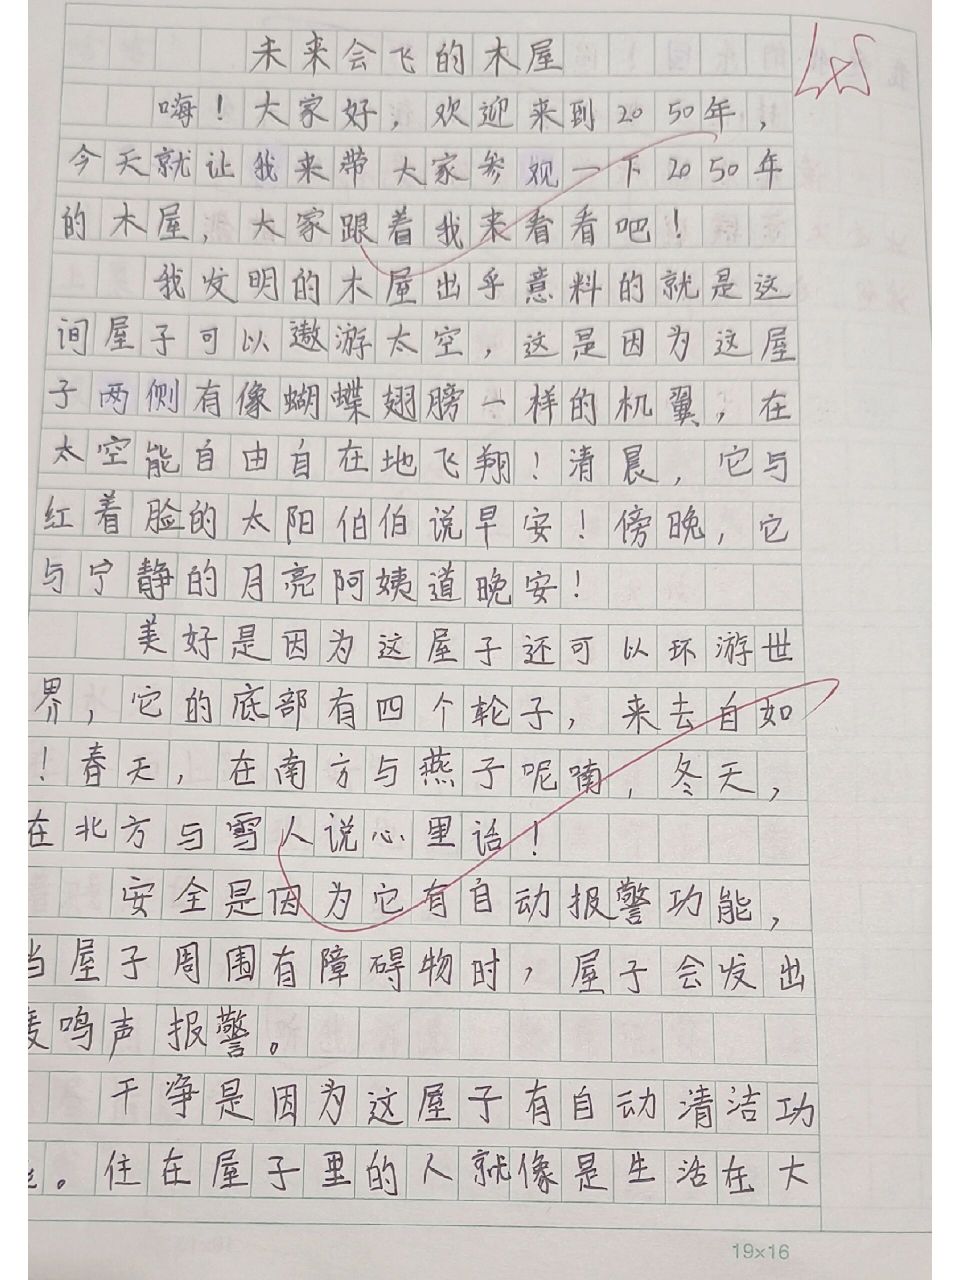 未来会飞的木屋
嗨！大家好，欢迎来到2050年，
今天就让我来带大家参观一下2050年
的木屋，大家跟着我来看看吧！
我发明的木屋出乎意料的就是这
间屋子可以遨游太空，这是因为这屋
子两侧有像蝴蝶翅膀一样的机翼，在
太空能自由自在地飞翔！清晨，它与
红着脸的太阳伯伯说早安！傍晚，它
与宁静的月亮阿姨道晚安！
美好是因为这屋子还可以环游世
界，它的底部有四个轮子，来去自如
！春天，在南方与燕子呢喃，冬天，
在北方与雪人说心里话！
安全是因为它有自动报警功能，
当屋子周围有障碍物时，屋子会发出
鸣声报警。
干净是因为这屋子有自动清洁功
能。住在屋子里的人就像是生活在大
19×16